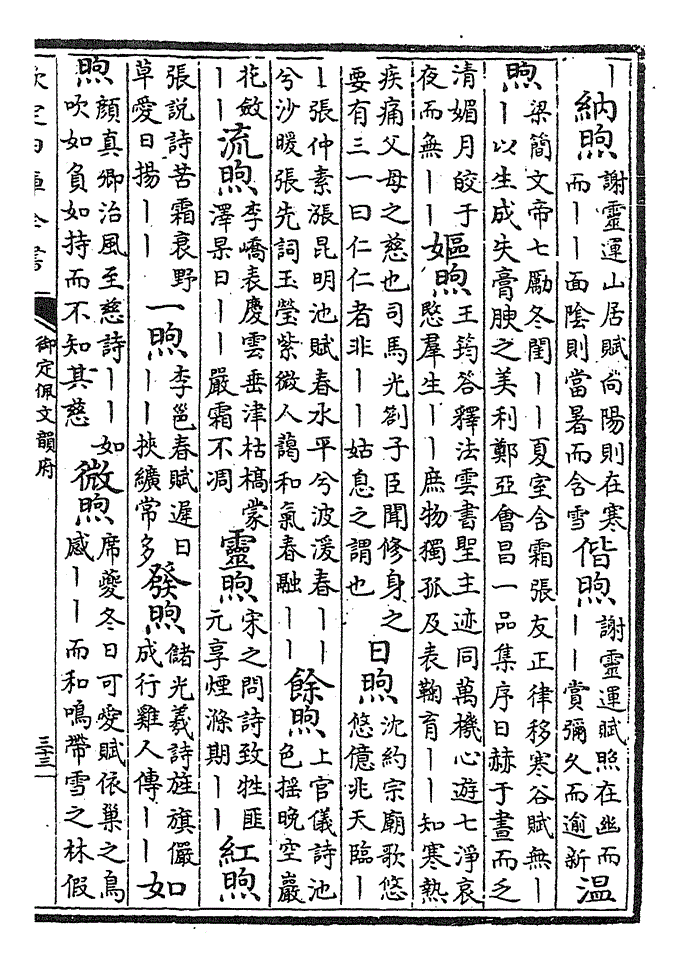 丨納煦謝靈運山居賦向陽則在寒而丨丨面陰則當暑而含雪偕煦謝靈運賦照在幽而丨丨賞彌久而逾新溫
煦梁簡文帝七勵冬閨丨丨夏室含霜張友正律移寒谷賦無丨丨以生成失膏腴之美利鄭亞會昌一品集序日赫于晝而乏
清媚月皎于夜而無丨丨嫗煦王筠答釋法雲書聖主迹同萬機心遊七淨哀愍羣生丨丨庶物獨孤及表鞠育丨丨知寒熱
疾痛父母之慈也司馬光劄子臣聞修身之要有三一曰仁仁者非丨丨姑息之謂也日煦沈約宗廟歌悠悠億兆天臨丨
丨張仲素漲昆明池賦春水平兮波湲春丨丨兮沙暖張先詞玉瑩紫微人藹和氣春融丨丨餘煦上官儀詩池色搖晚空巖
花斂丨丨流煦李嶠表慶雲垂津枯槁蒙澤杲日丨丨嚴霜不凋靈煦宋之問詩致牲匪元享煙滌期丨丨紅煦
張說詩苦霜裛野草愛日揚丨丨一煦李邕春賦遲日丨丨挾纊常多發煦儲光羲詩旌旗儼成行雞人傳丨丨如
煦顏真卿治風至慈詩丨丨如吹如負如持而不知其慈微煦席夔冬日可愛賦依巢之鳥感丨丨而和鳴帶雪之林假
欽定四庫全書
御定佩文韻府
三十三